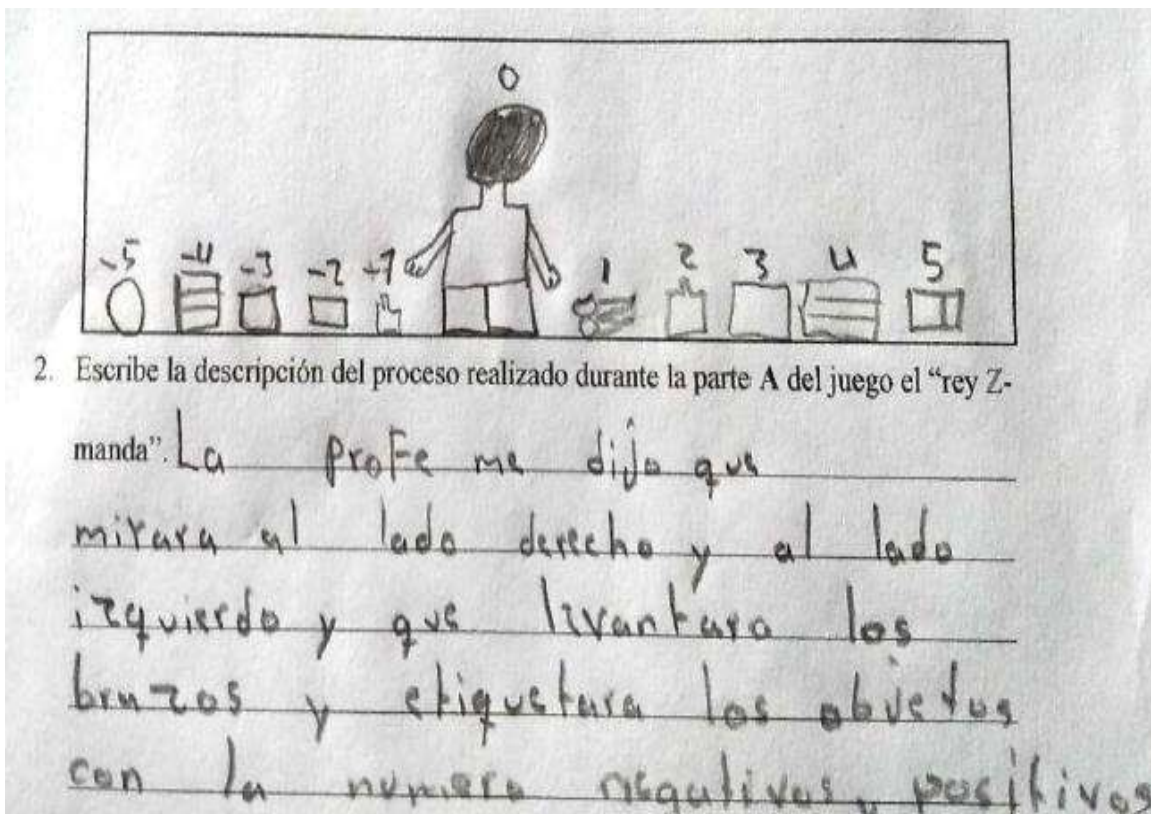 0
-5 -4 -3 -2 -1 1 2 3 4 5
2. Escribe la descripción del proceso realizado durante la parte A del juego el “rey Z-
manda”. La profe me dijo que
mirara al lado derecho y al lado
izquierdo y que livantara los
brazos y etiquetara los objetos
con la numero negativos y positivos